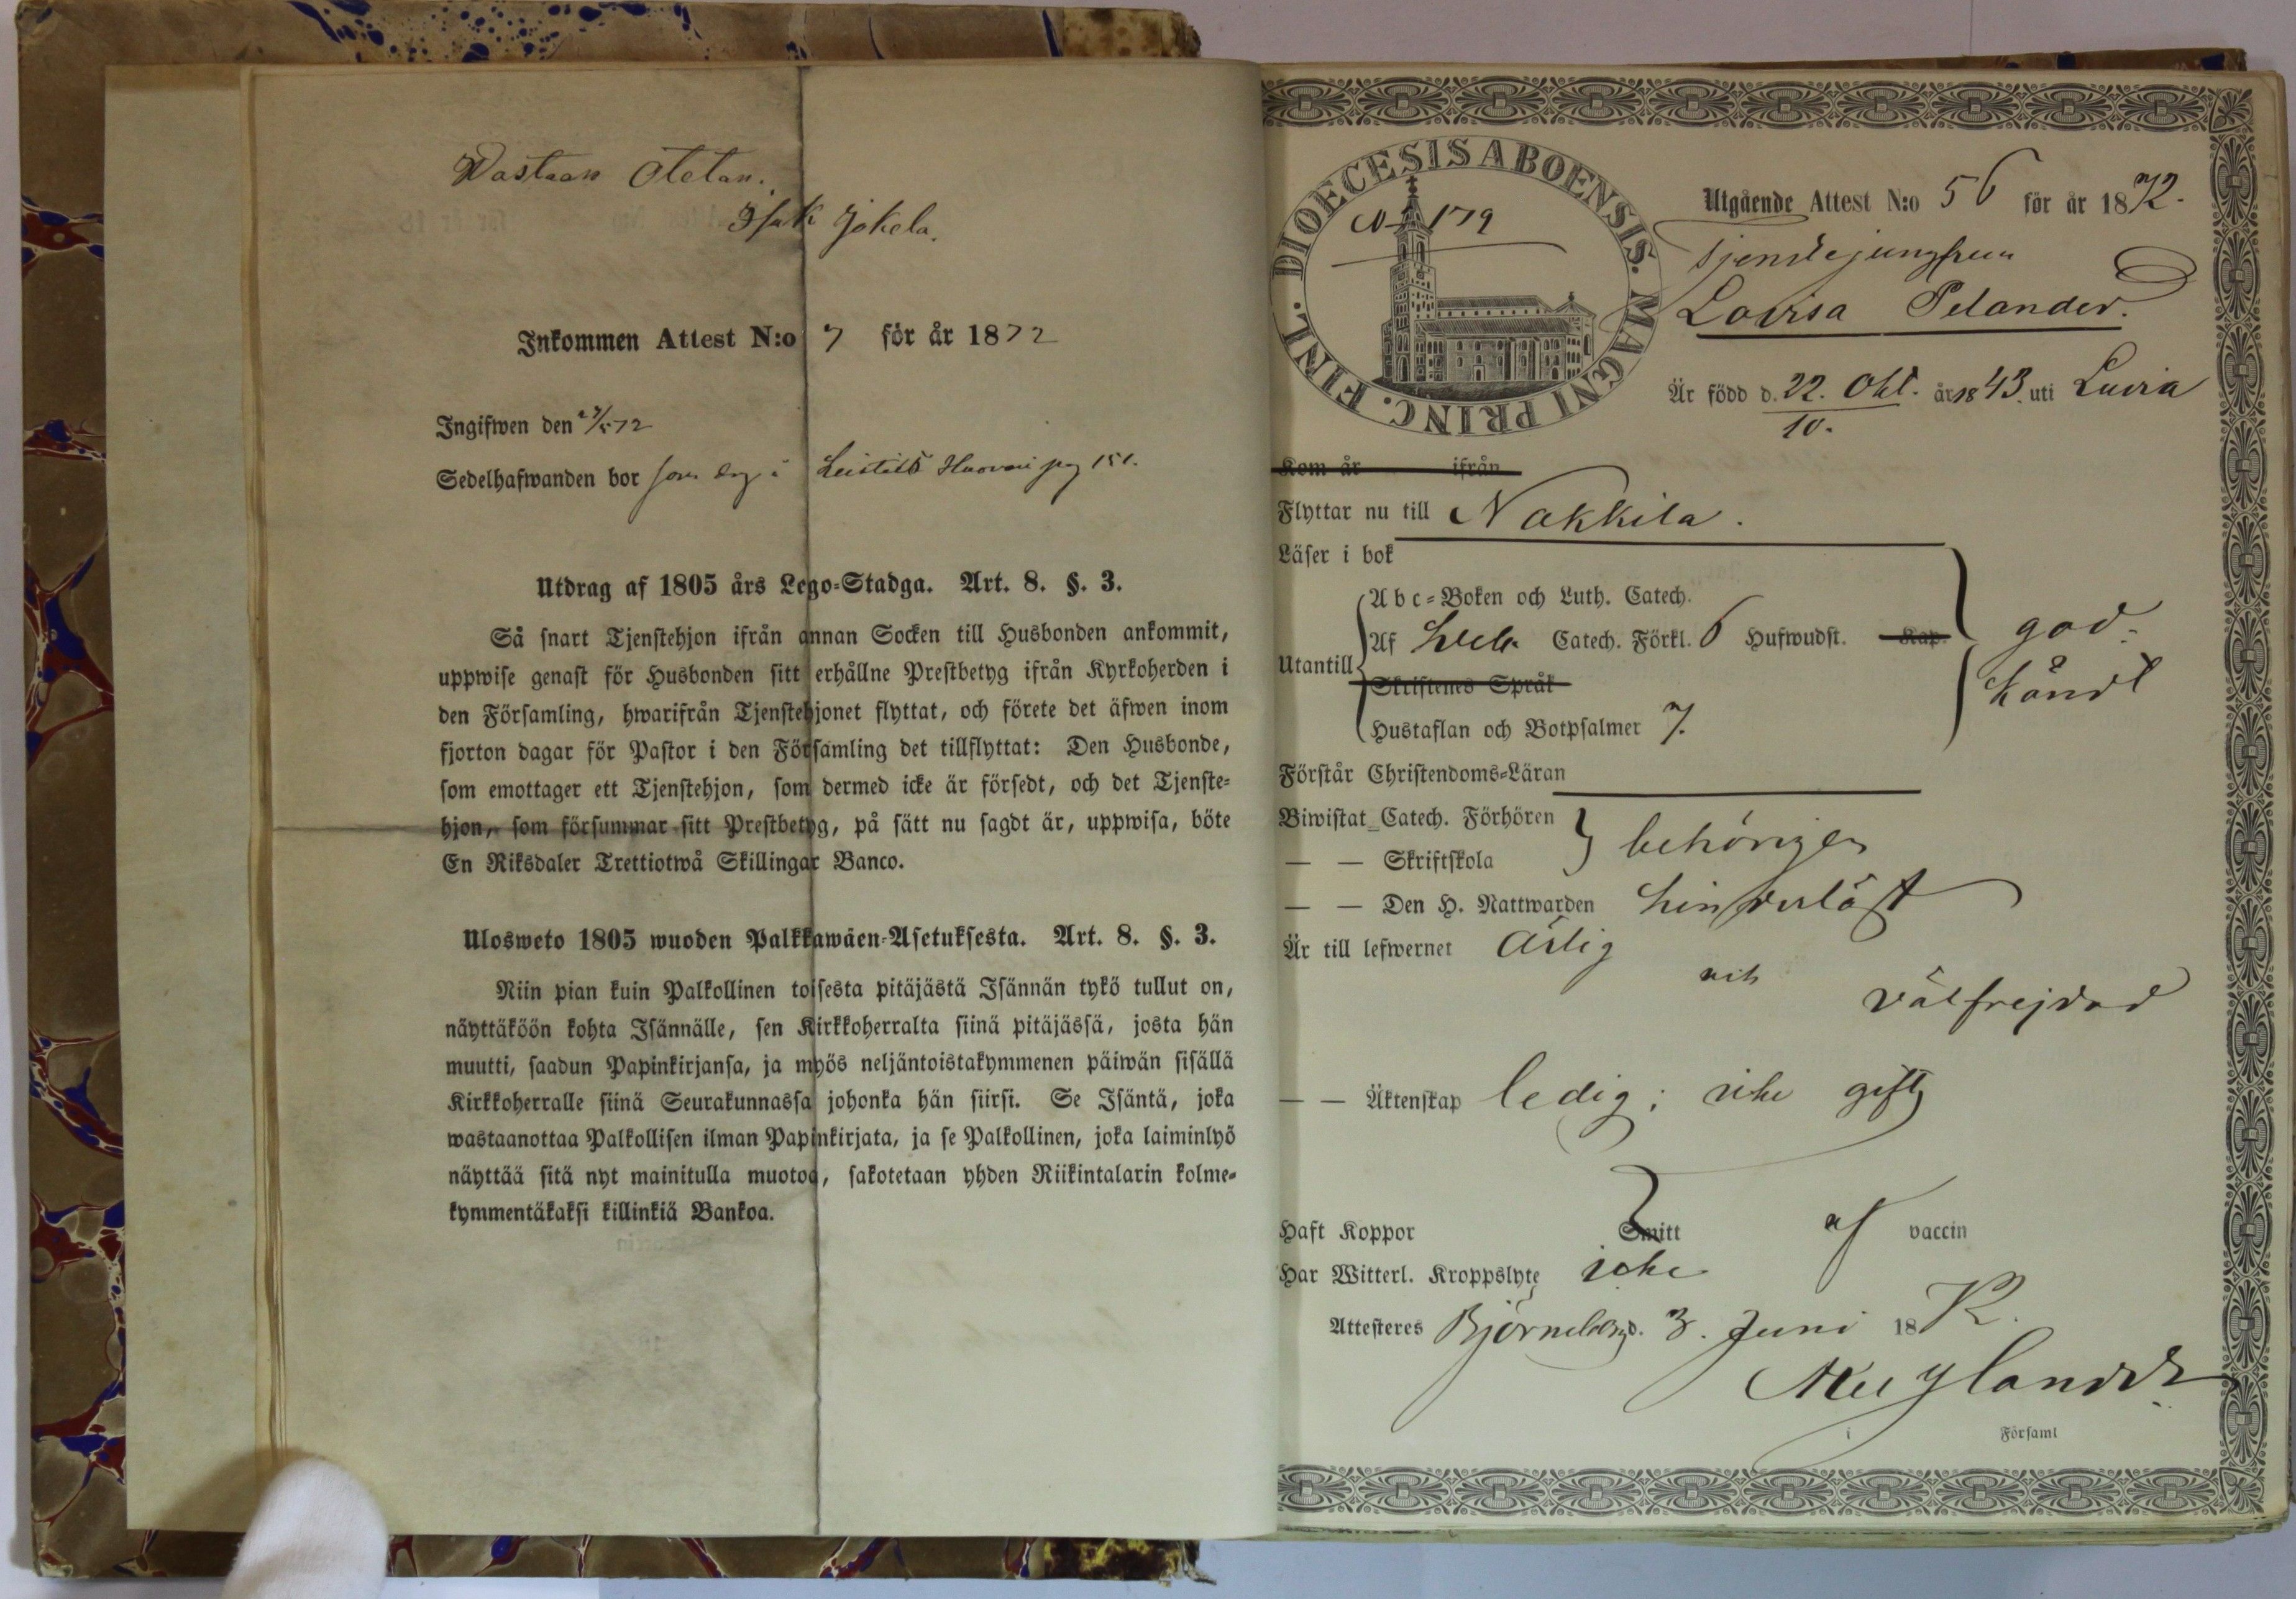 Wastaan Otetan.
Isak Jokela.
Inkommen Attest N:o 7 för år 1872
Ingifwen den /5 72
Sedelhafwanden bor som i pag 151.
Utdrag af 1805 års Lego-Stadga. Art. 8. §. 3.
Så snart Tjenstehjon ifrån annan Socken till Husbonden ankommit,
uppwise genast för Husbonden sitt erhållne Prestbetyg ifrån Kyrkoherden i
den Församling, hwarifrån Tjenstehjonet flyttat, och förete det äfwen inom
fjorton dagar för Pastor i den Församling det tillflyttat: Den Husbonde,
som emottager ett Tjenstehjon, som dermed icke är försedt, och det Tjenste-
hjon, som försummar sitt Prestbetyg, på sätt nu sagdt är, uppwisa, böte
En Riksdaler Trettiotwå Skillingar Banco.
Ulosweto 1805 wuoden Palkkawäen-Asetuksesta. Art. 8. §. 3.
Niin pian kuin Palkollinen toisesta pitäjästä Isännän tykö tullut on,
näyttäköön kohta Isännälle, sen Kirkkoherralta siinä pitäjässä, josta hän
muutti, saadun Papinkirjansa, ja myös neljäntoistakymmenen päiwän sisällä
Kirkkoherralle siinä Seurakunnassa johonka hän siirsi. Se Isäntä, joka
wastaanottaa Palkollisen ilman Papinkirjata, ja se Palkollinen, joka laiminlyö
näyttää sitä nyt mainitulla muotoa, sakotetaan yhden Riikintalarin kolme-
kymmentäkaksi killinkiä Bankoa.
DIOECESIS ABOENSIS. MAGNI PRINC. FINL.
N 179
Utgående Attest N:o 56 för år 1872.
Tjenstejungfrun
Lovisa Pelander.
Är född d. 22. Okt. år 1843. uti Luvia
10.
Kom år ifrån
Flyttar nu till Nakkila.
Läser i bok
Abc-Boken och Luth. Catech.
Af Catech. Förkl. 6 Hufwudst. Kap.
god.
Utantill
Skriftenes Språk
känd
Hustaflan och Botpsalmer 7.
Förstår Christendoms-Läran
Biwistat Catech. Förhören
behörigen
— — Skriftskola
— — Den H. Nattwarden hinderlöst
Är till lefwernet ärlig
och
välfrejdad
— — Äktenskap ledig; icke gift
Haft Koppor Smitt af vaccin
Har Witterl. Kroppslyte icke
Attesteres Björneborg d. 3. Juni 1872.
i Församl